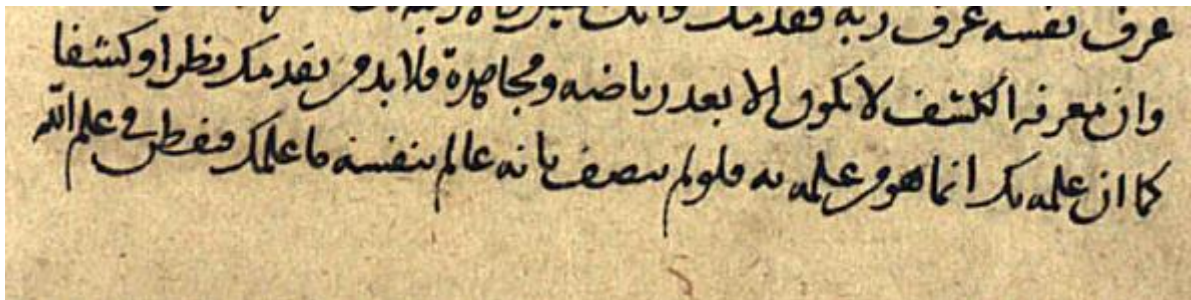 عرف نفسه عرف ربه فقدمك
وان معرفة الكشف لا تكون الا بعد رياضه ومجاهدة فلا بد من تقدمك نظرا وكشفا
كما ان علمه بك انما هو من علمه به فلو لم يتصف بانه عالم بنفسه ما علمك فتفطن في علم الله